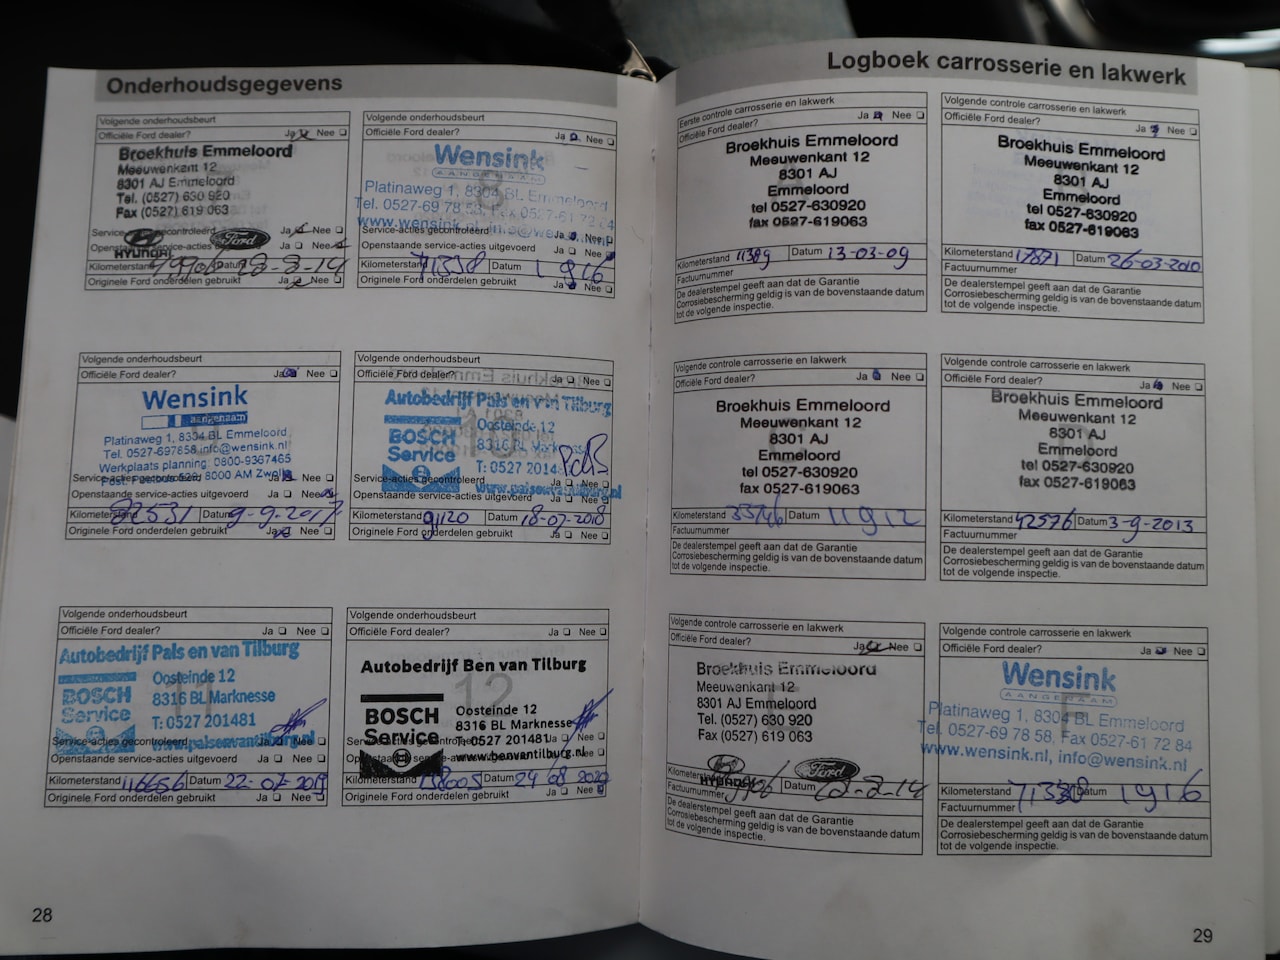 Onderhoudsgegevens
Volgende onderhoudsbeurt
Officiële Ford dealer? Ja Nee
Broekhuis Emmeloord
Meeuwenkant 12
8301 AJ Emmeloord
Tel. (0527) 630 920
Fax (0527) 619 063
Service-acties gecontroleerd Ja Nee
Openstaande service-acties Ja Nee
HYUNDAI Ford
Kilometerstand Datum 28-8-14
Originele Ford onderdelen gebruikt Ja Nee
Volgende onderhoudsbeurt
Officiële Ford dealer? Ja Nee
Wensink
AANGENAAM
8
Platinaweg 1, 8304 BL Emmeloord
Tel. 0527-69 78 58, Fax 0527-61 72 84
www.wensink.nl, info@wensink.nl
Service-acties gecontroleerd Ja Nee
Openstaande service-acties uitgevoerd Ja Nee
Kilometerstand 71338 Datum 1 9 16
Originele Ford onderdelen gebruikt Ja Nee
Volgende onderhoudsbeurt
Officiële Ford dealer? Ja Nee
Wensink
aangenaam
Platinaweg 1, 8304 BL Emmeloord
Tel. 0527-697858 info@wensink.nl
Werkplaats planning: 0800-9367465
8000 AM Zwolle
Service-acties gecontroleerd Ja Nee
Openstaande service-acties uitgevoerd Ja Nee
Kilometerstand 82531 Datum 9-9-2017
Originele Ford onderdelen gebruikt Ja Nee
Volgende onderhoudsbeurt
Officiële Ford dealer? Ja Nee
Autobedrijf Pals en van Tilburg
10
BOSCH
Service
Oosteinde 12
8316 BL Marknesse
T: 0527 2014
www.palsenvantilburg.nl
Service-acties gecontroleerd Ja Nee
Openstaande service-acties uitgevoerd Ja Nee
Kilometerstand 91120 Datum 18-07-2018
Originele Ford onderdelen gebruikt Ja Nee
Volgende onderhoudsbeurt
Officiële Ford dealer? Ja Nee
Autobedrijf Pals en van Tilburg
11
BOSCH
Service
Oosteinde 12
8316 BL Marknesse
T: 0527 201481
www.palsenvantilburg.nl
Service-acties gecontroleerd Ja Nee
Openstaande service-acties uitgevoerd Ja Nee
Kilometerstand 116656 Datum 22-07-2019
Originele Ford onderdelen gebruikt Ja Nee
Volgende onderhoudsbeurt
Officiële Ford dealer? Ja Nee
Autobedrijf Ben van Tilburg
12
BOSCH
Service
Oosteinde 12
8316 BL Marknesse
T: 0527 201481
www.benvantilburg.nl
Service-acties gecontroleerd Ja Nee
Openstaande service-acties uitgevoerd Ja Nee
Kilometerstand Datum 24 08 2020
Originele Ford onderdelen gebruikt Ja Nee
28
Logboek carrosserie en lakwerk
Eerste controle carrosserie en lakwerk
Officiële Ford dealer? Ja Nee
Broekhuis Emmeloord
Meeuwenkant 12
8301 AJ
Emmeloord
tel 0527-630920
fax 0527-619063
Kilometerstand 11389 Datum 13-03-09
Factuurnummer
De dealerstempel geeft aan dat de Garantie
Corrosiebescherming geldig is van de bovenstaande datum
tot de volgende inspectie.
Volgende controle carrosserie en lakwerk
Officiële Ford dealer? Ja Nee
Broekhuis Emmeloord
Meeuwenkant 12
8301 AJ
Emmeloord
tel 0527-630920
fax 0527-619063
Kilometerstand 17871 Datum 26-03-2010
Factuurnummer
De dealerstempel geeft aan dat de Garantie
Corrosiebescherming geldig is van de bovenstaande datum
tot de volgende inspectie.
Volgende controle carrosserie en lakwerk
Officiële Ford dealer? Ja Nee
Broekhuis Emmeloord
Meeuwenkant 12
8301 AJ
Emmeloord
tel 0527-630920
fax 0527-619063
Kilometerstand Datum 11 9 12
Factuurnummer
De dealerstempel geeft aan dat de Garantie
Corrosiebescherming geldig is van de bovenstaande datum
tot de volgende inspectie.
Volgende controle carrosserie en lakwerk
Officiële Ford dealer? Ja Nee
Broekhuis Emmeloord
Meeuwenkant 12
8301 AJ
Emmeloord
tel 0527-630920
fax 0527-619063
Kilometerstand 42576 Datum 3-9-2013
Factuurnummer
De dealerstempel geeft aan dat de Garantie
Corrosiebescherming geldig is van de bovenstaande datum
tot de volgende inspectie.
Volgende controle carrosserie en lakwerk
Officiële Ford dealer? Ja Nee
Broekhuis Emmeloord
Meeuwenkant 12
8301 AJ Emmeloord
Tel. (0527) 630 920
Fax (0527) 619 063
HYUNDAI Ford
Kilometerstand Datum
Factuurnummer
De dealerstempel geeft aan dat de Garantie
Corrosiebescherming geldig is van de bovenstaande datum
tot de volgende inspectie.
Volgende controle carrosserie en lakwerk
Officiële Ford dealer? Ja Nee
Wensink
AANGENAAM
F
Platinaweg 1, 8304 BL Emmeloord
Tel. 0527-69 78 58, Fax 0527-61 72 84
www.wensink.nl, info@wensink.nl
Kilometerstand 71338 Datum 1 9 16
Factuurnummer
De dealerstempel geeft aan dat de Garantie
Corrosiebescherming geldig is van de bovenstaande datum
tot de volgende inspectie.
29